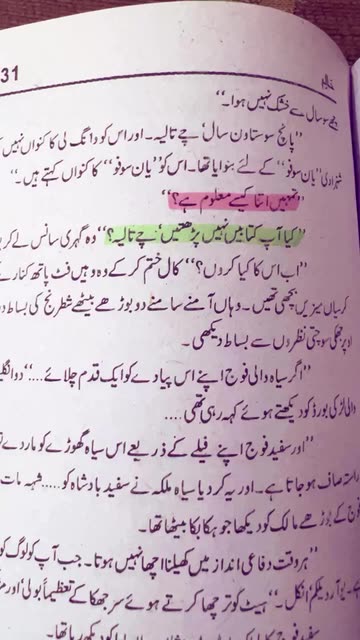 31
حالم
چھ سو سال سے خشک نہیں ہوا۔‘‘
’’پانچ سو ستاون سال‘ چے تالیہ۔ اور اس کو دانگ لی کا کنواں نہیں
شہزادی ’’یان سوفو‘‘ کے لئے بنوایا تھا۔ اس کو ’’یان سوفو‘‘ کا کنواں کہتے ہیں۔‘‘
’’تمہیں اتنا کیسے معلوم ہے؟‘‘
’’کیا آپ کتابیں نہیں پڑھتیں‘ چے تالیہ؟‘‘ وہ گہری سانس لے کر
’’اب اس کا کیا کروں؟‘‘ کال ختم کر کے وہ وہیں فٹ پاتھ کنارے
کرسیاں میزیں بچھی تھیں۔ وہاں آمنے سامنے دو بوڑھے بیٹھے شطرنج کی بساط
اوپر جھکی سوچتی نظروں سے بساط دیکھی۔
’’اگر سیاہ والی فوج اپنے اس پیادے کو ایک قدم چلائے....‘‘ دو
والی لڑکی بورڈ کو دیکھتے ہوئے کہہ رہی تھی....
’’اور سفید فوج اپنے فیلے کے ذریعے اس سیاہ گھوڑے کو مار دے
راستہ صاف ہو جاتا ہے۔ اور یہ کر دیا سیاہ ملکہ نے سفید بادشاہ کو.....شہہ مات
فوج کے بوڑھے مالک کو دیکھا جو ہکا بکا بیٹھا تھا۔
’’ہر وقت دفاعی انداز میں کھیلنا اچھا نہیں ہوتا۔ جب آپ کو لوگ کو
یو آر ویلکم انکل۔‘‘ ہیٹ کو ترچھا کرتے ہوئے سر جھکا کے تعظیماً بولی اور
کو دیکھ رہا تھا۔